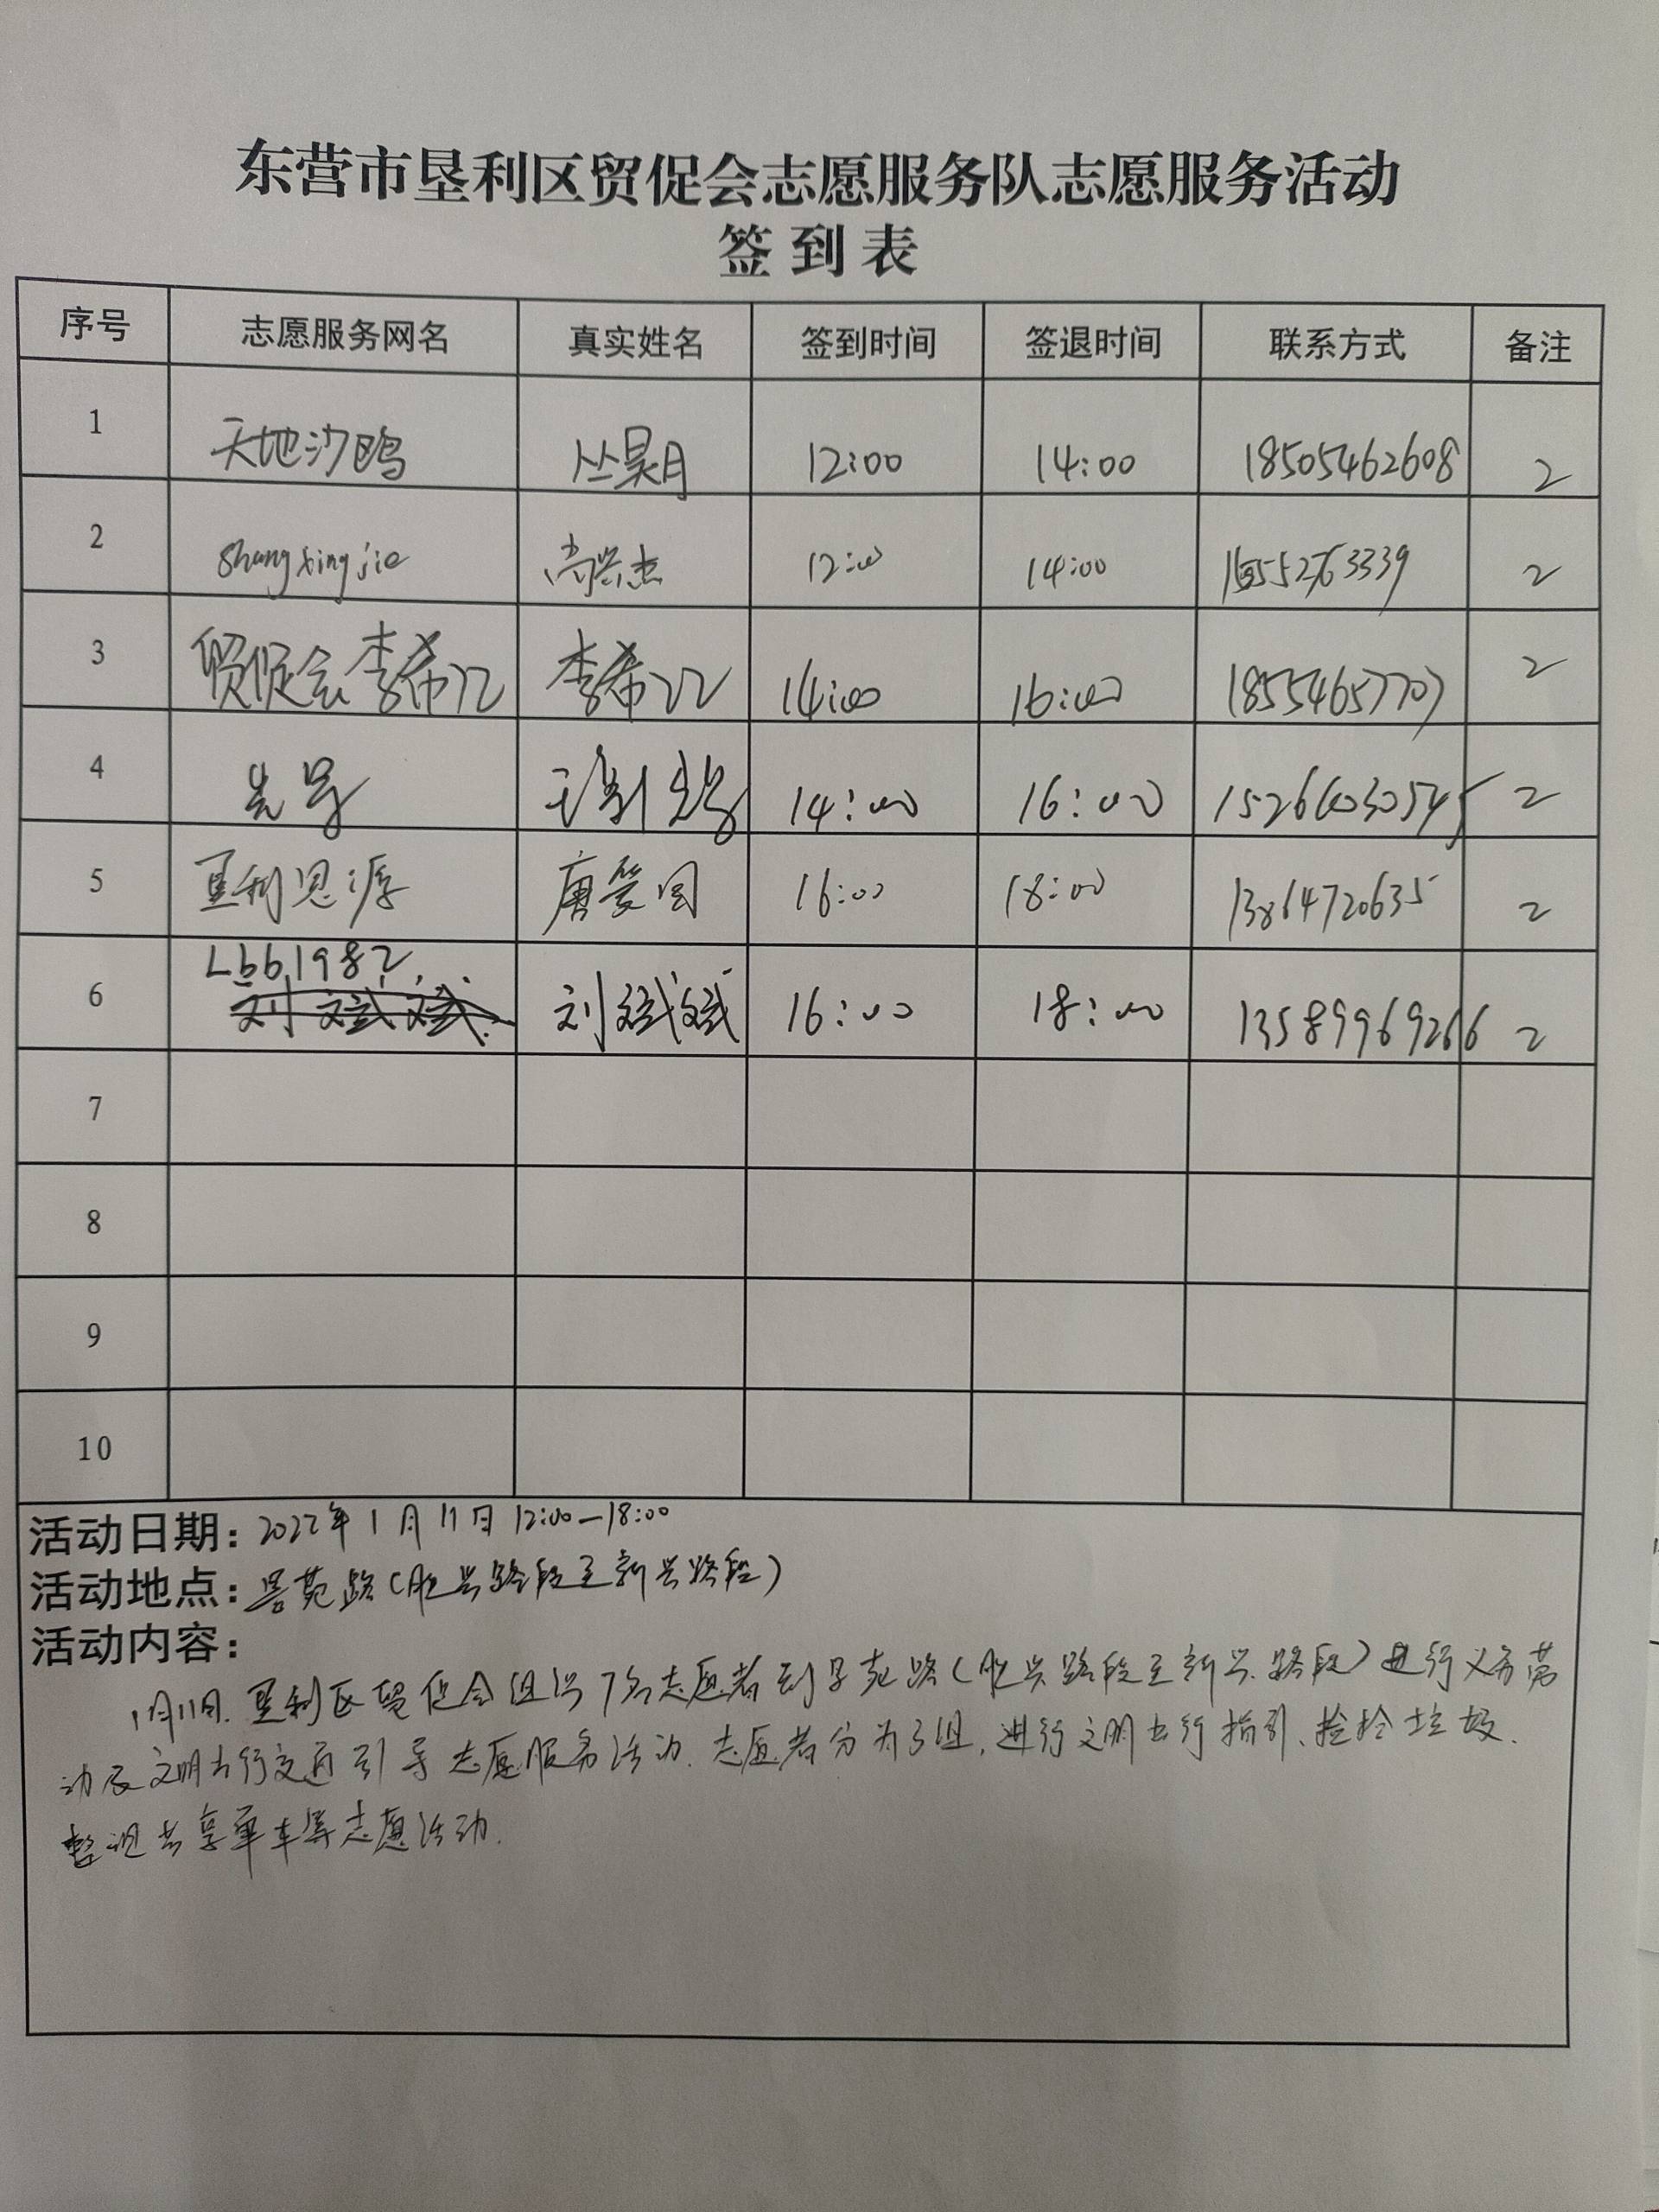 东营市垦利区贸促会志愿服务队志愿服务活动
签到表
序号 志愿服务网名 真实姓名 签到时间 签退时间 联系方式 备注
1 天地沙鸥 丛昊月 12:00 14:00 18505462608 2
2 shangxingjie 尚兴杰 12:00 14:00 2
3 贸促会李希 李希 14:00 16:00 18554657707 2
4 先号 14:00 16:00 2
5 垦利思源 唐爱国 16:00 18:00 13864720635 2
6 Lbb1982 刘斌斌 刘斌斌 16:00 18:00 13589969266 2
7
8
9
10
活动日期：2022年1月11日 12:00—18:00
活动地点：景苑路（胜兴路段至新兴路段）
活动内容：
1月11日.垦利区贸促会组织7名志愿者到景苑路（胜兴路段至新兴路段）进行义务劳
动及文明出行交通引导志愿服务活动.志愿者分为3组,进行文明出行指引、捡拾垃圾.
整理共享单车等志愿活动.